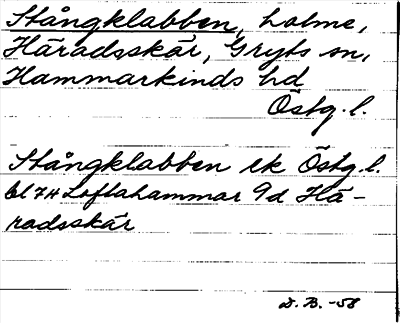 Stångklabben, holme,
Häradsskär, Gryts sn,
Hammarkinds hd
Östg. l.
Stångklabben ek Östg. l.
bl 74 Loftahammar 9d Hä-
radsskär
D. B. -58